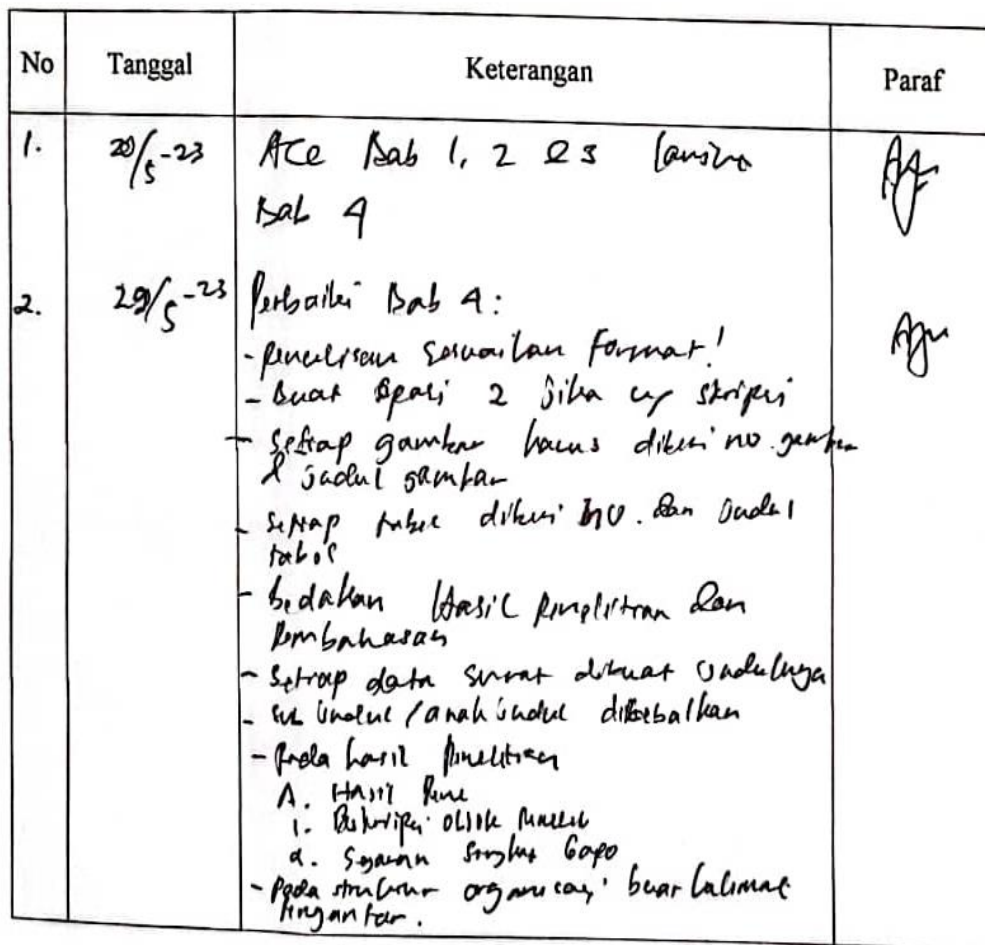 No Tanggal Keterangan Paraf
1. 20/5-23 Acc Bab 1, 2 & 3
Bab 4
2. 29/5-23 Perbaiki Bab 4:
- Penulisan sesuaikan format!
- Buat spasi 2 jika skripsi
- Setiap gambar harus diberi no. gambar
& judul gambar
- Setiap tabel diberi no. dan judul
tabel
- bedakan Hasil Penelitian dan
Pembahasan
- Setiap data surat dibuat judulnya
- sub judul / anak judul ditebalkan
- Pada hasil Penelitian
A. Hasil Pene
1. Deskripsi objek
a. Sejarah singkat
- Pada struktur organisasi buat kalimat
pengantar.